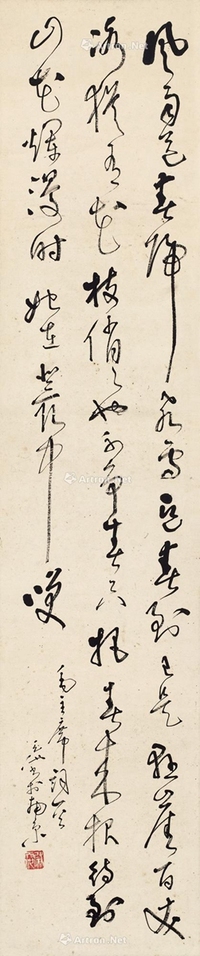 风雨送春归飞雪迎春到已是悬崖百丈
冰犹有花枝俏俏也不争春只把春来报待到
山花烂漫时她在丛中笑
毛主席词